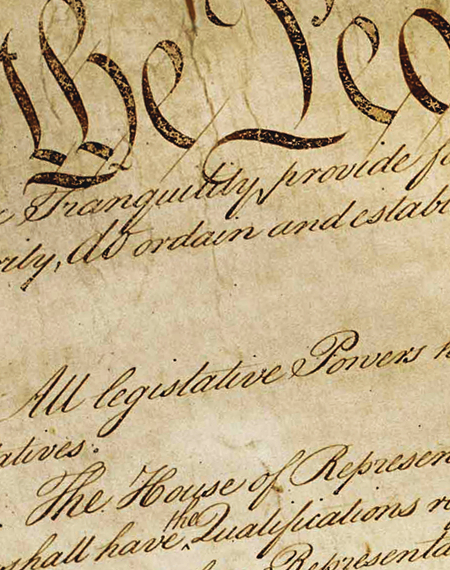 the Peo
Tranquility, provide fo
rity, do ordain and establ
All legislative Powers h
atives.
The House of Represen
shall have the Qualifications re
Representa